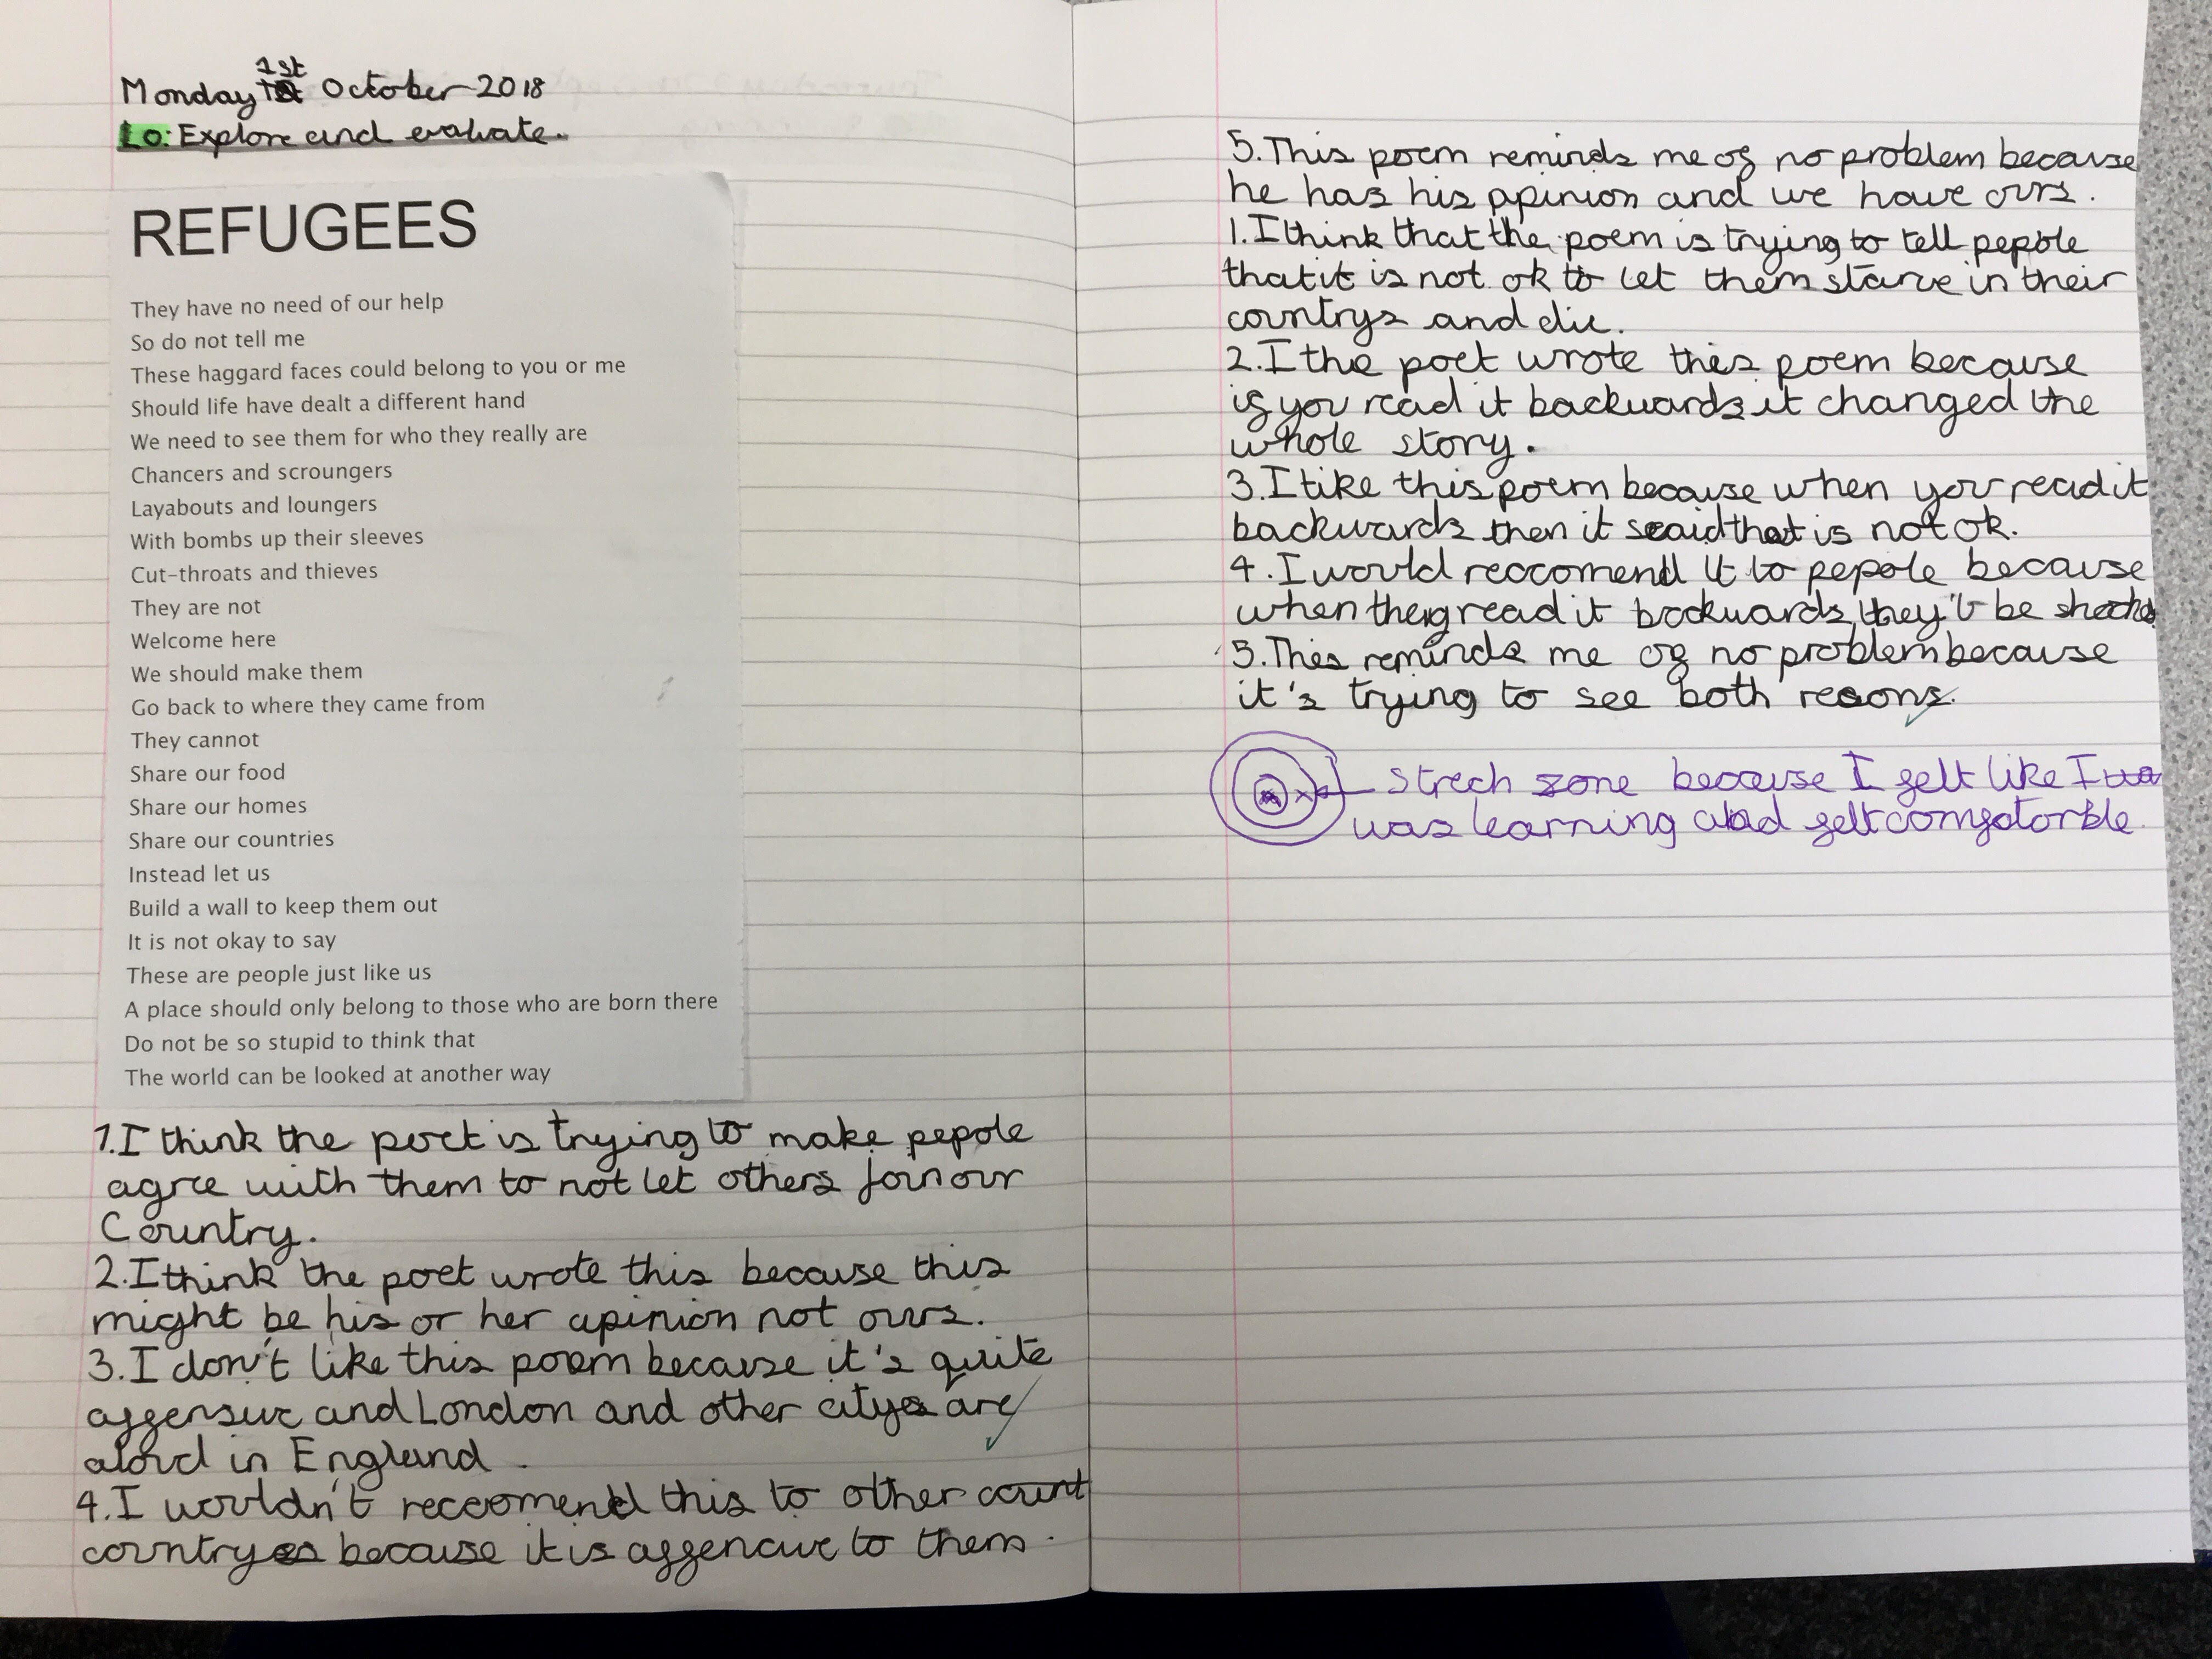 Monday 1st October 2018
Lo: Explore and evaluate.
REFUGEES
They have no need of our help
So do not tell me
These haggard faces could belong to you or me
Should life have dealt a different hand
We need to see them for who they really are
Chancers and scroungers
Layabouts and loungers
With bombs up their sleeves
Cut-throats and thieves
They are not
Welcome here
We should make them
Go back to where they came from
They cannot
Share our food
Share our homes
Share our countries
Instead let us
Build a wall to keep them out
It is not okay to say
These are people just like us
A place should only belong to those who are born there
Do not be so stupid to think that
The world can be looked at another way
1.I think the poet is trying to make pepole
agree with them to not let others join our
Country.
2.I think the poet wrote this because this
might be his or her apinion not ours.
3.I don't like this poem because it's quite
affensive and London and other citys are
aloud in England.
4.I wouldn't reccomend this to other
countryes because it is affencive to them.
5.This poem reminds me of no problem because
he has his apinion and we have ours.
1.I think that the poem is trying to tell pepole
that it is not ok to let them starve in their
countrys and die.
2.I the poet wrote this poem because
if you read it backwards it changed the
whole story.
3.I like this poem because when you read it
backwards then it said that is not ok.
4.I would reccomend it to pepole because
when they read it backwards they'l be
5.This reminds me of no problem because
it's trying to see both reasons.
Strech zone because I felt like I
was learning and felt comfotorble.